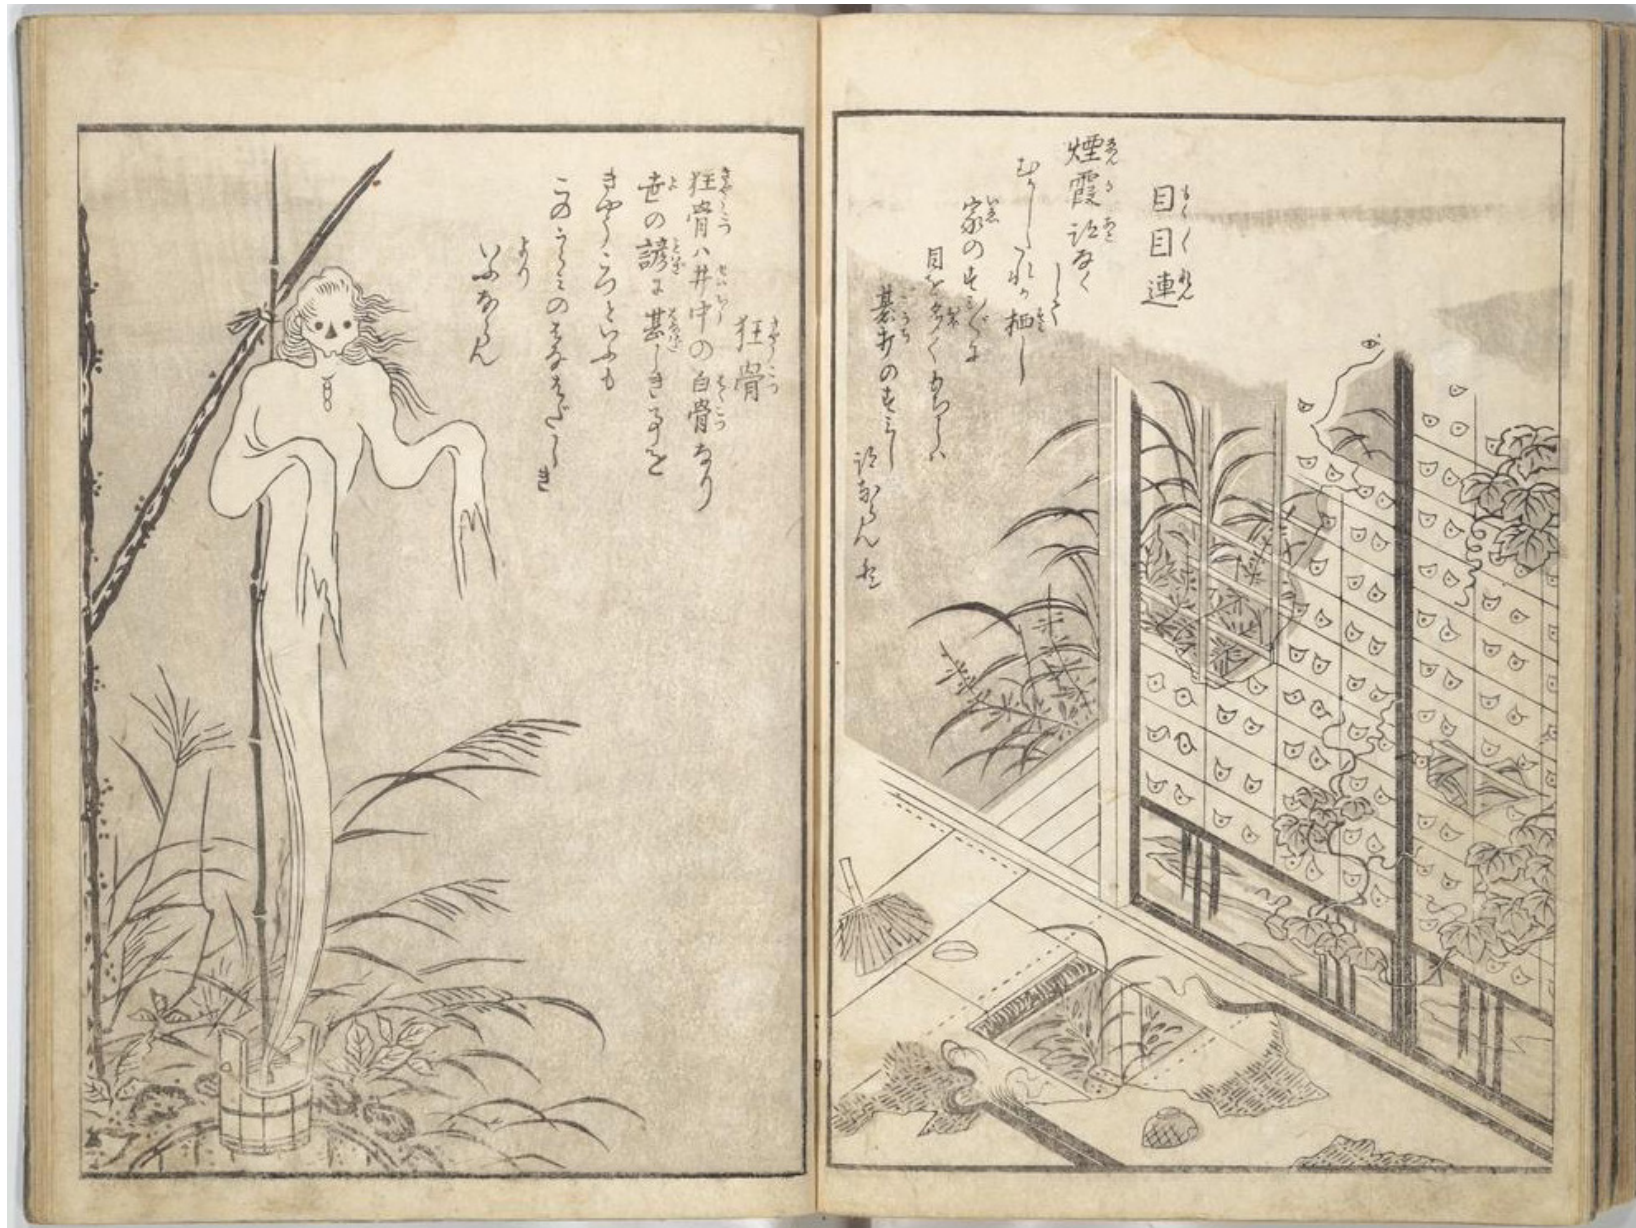 目目連
煙霞跡なく
して
むかしたれか栖し
家のすみ〴〵に
目を多くもちしハ
碁打のすみし
跡ならんか
狂骨
狂骨ハ井中の白骨なり
世の諺に甚しき事を
きやうこつといふも
このうらみのはなはだしき
より
いふならん